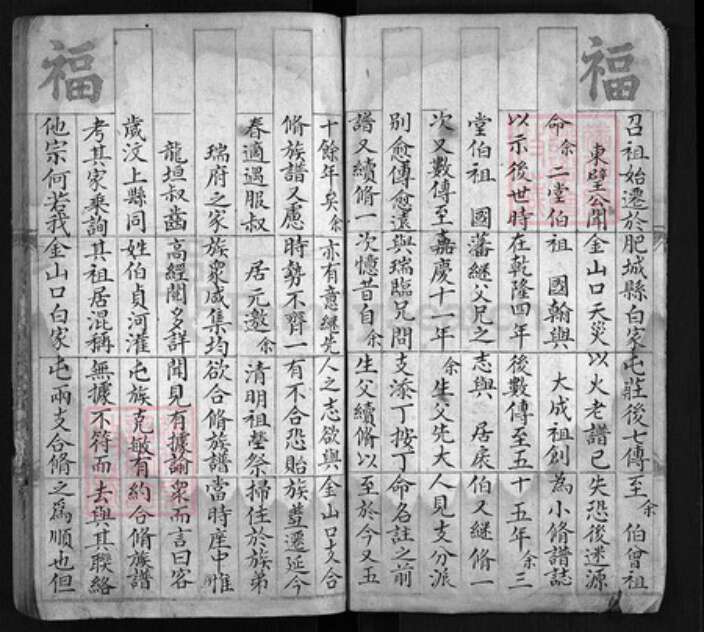 福
福
召祖始遷於肥城縣白家屯莊後七傳至余伯曾祖
東壁公聞金山口天災以火老譜已失恐後迷源
命余二堂伯祖國翰與大成祖創為小脩譜誌
以示後世時在乾隆四年後數傳至五十五年余三
堂伯祖國藩継父兄之志與居扆伯又継脩一
次又數傳至嘉慶十一年余生父先大人見支分派
別愈傳愈遠與瑞臨兄問支添丁按丁命名註之前
譜又續脩一次憶昔自余生父續脩以至於今又五
十餘年矣余亦有意継先人之志欲與金山口支合
脩族譜又慮時勢不齊一有不合恐貽族羞遷延今
春適遇服叔居元邀余清明祖塋祭掃住於族弟
瑞府之家族衆咸集均欲合脩族譜當時座中惟
龍垣叔齒高經閱多詳聞見有據諭衆而言曰客
歲汶上縣同姓伯貞河漄屯族克敏有約合脩族譜
考其家乘詢其祖居混稱無據不符而去與其聯絡
他宗何若我金山口白家屯兩支合脩之為順也但